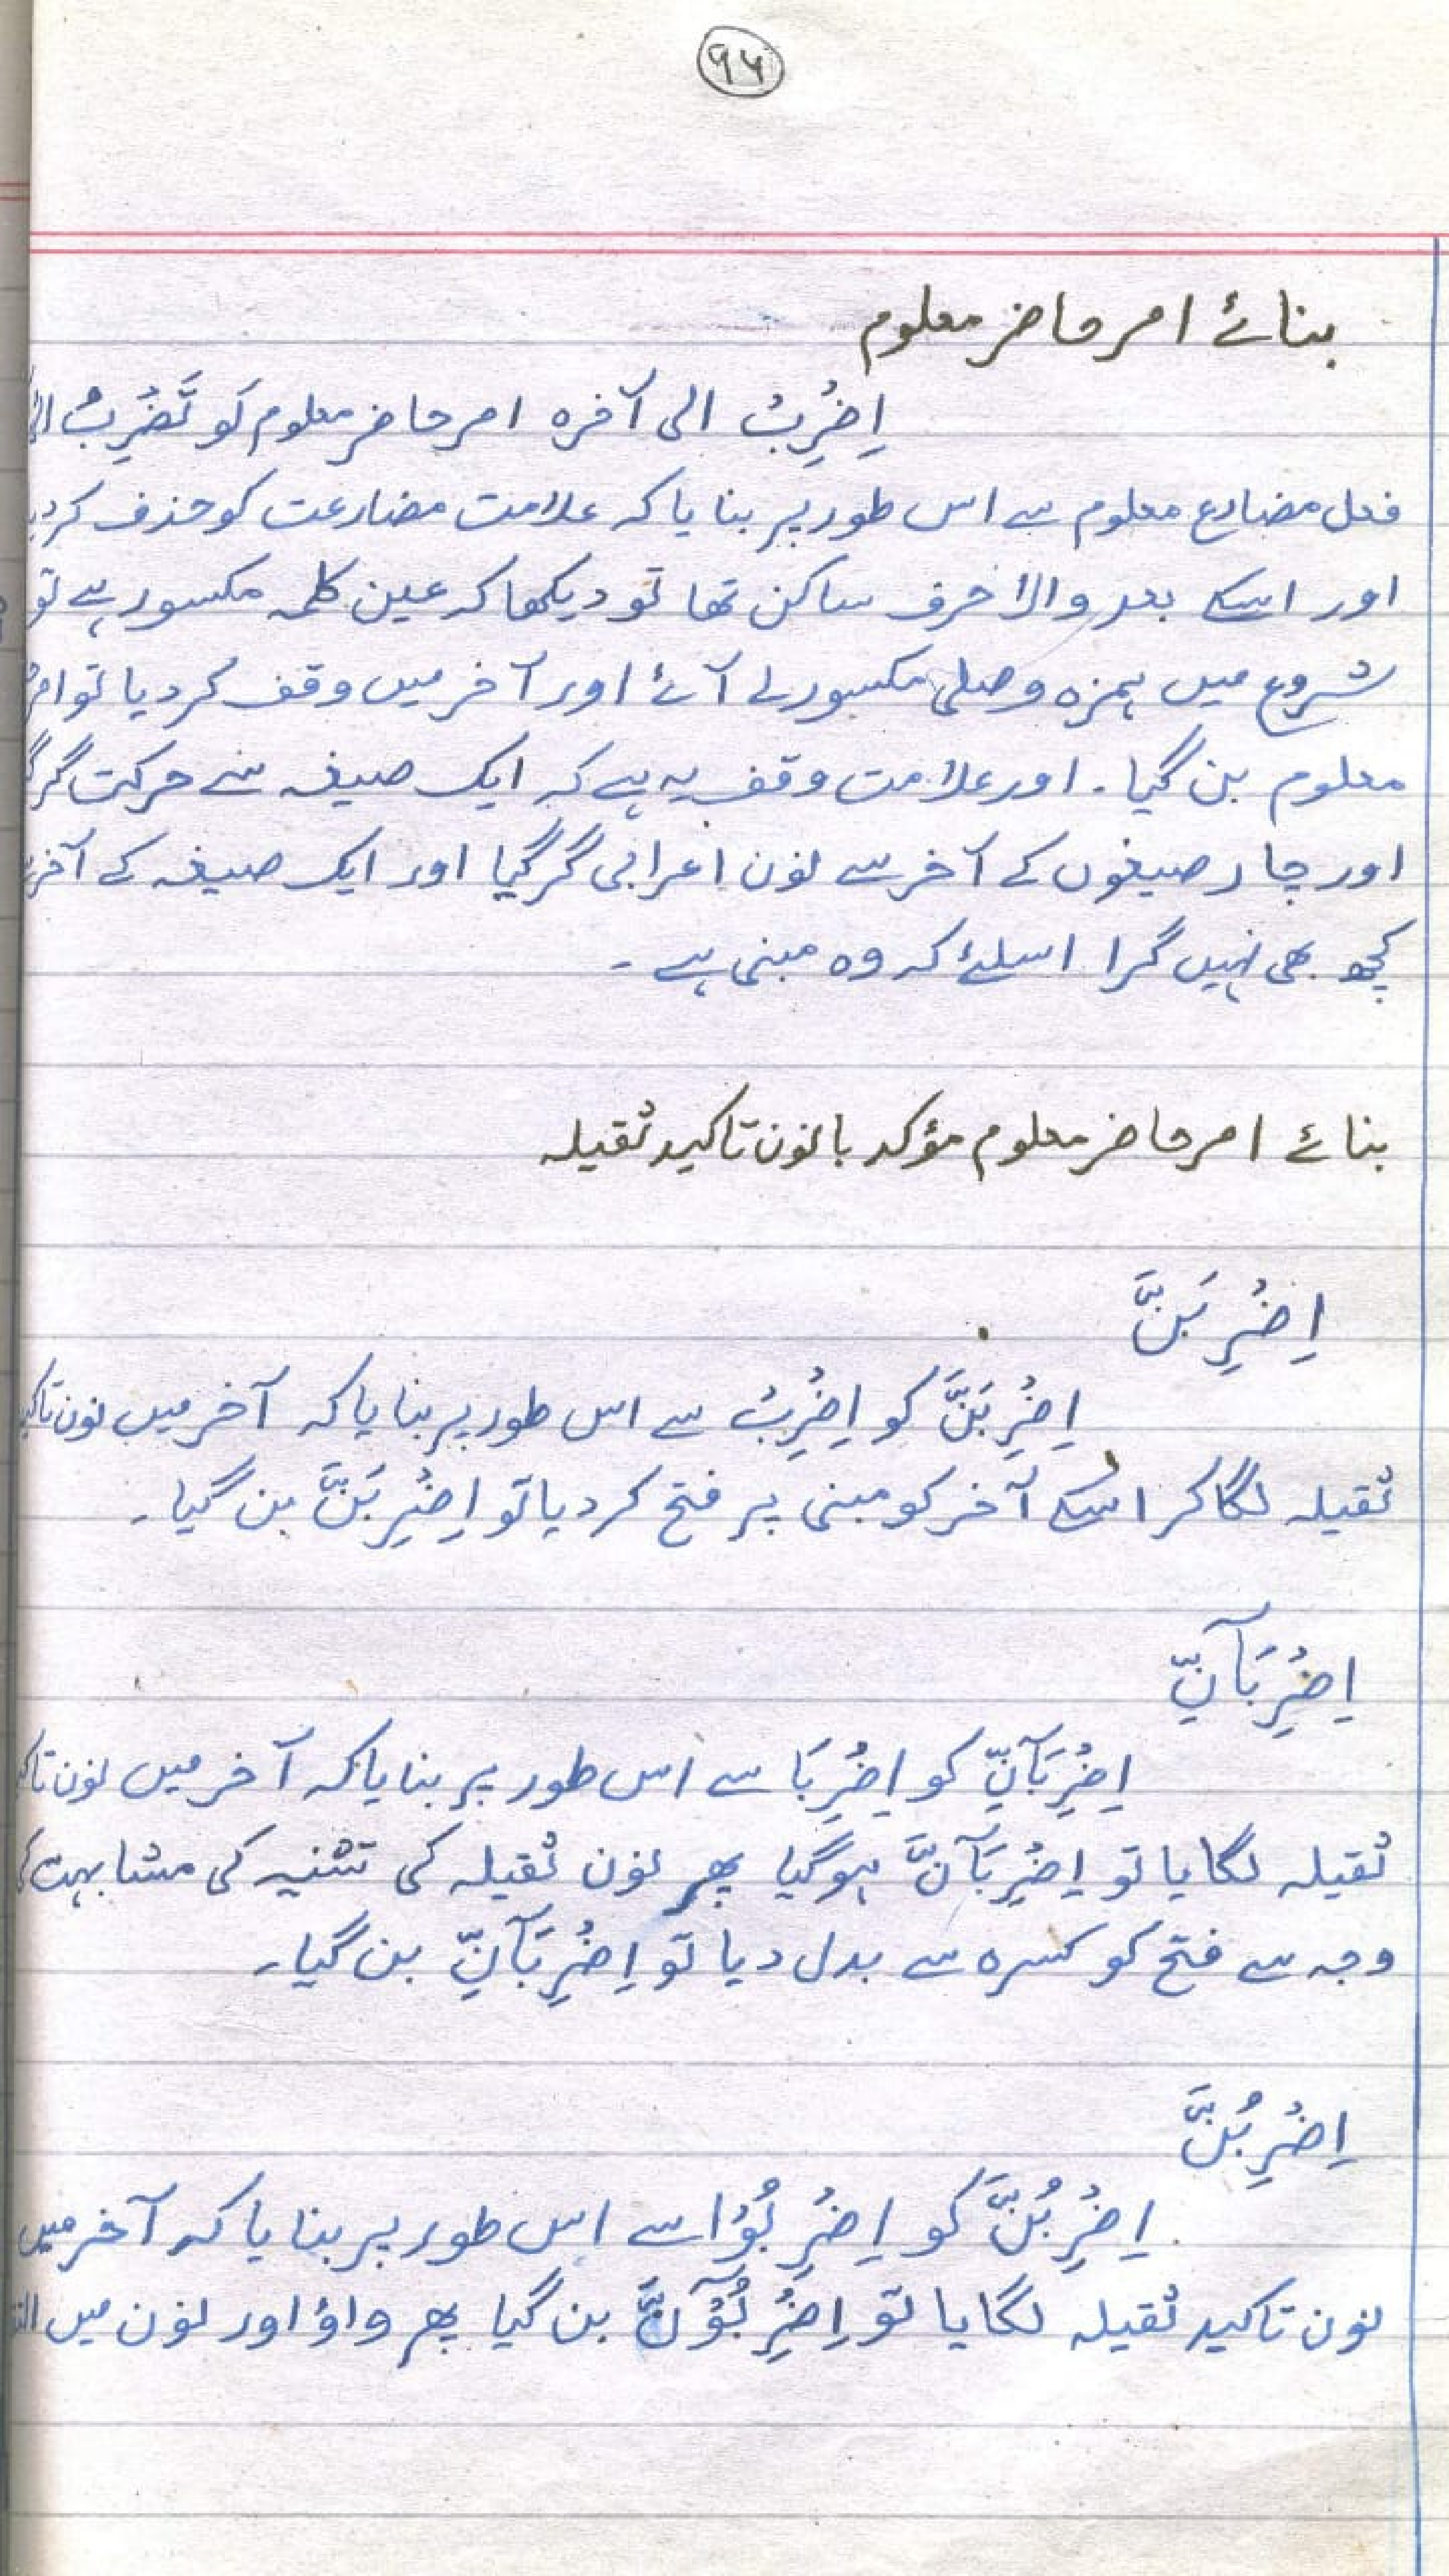 ۹۴
بنائے امر حاضر معلوم
اِضْرِبْ الی آخرہ امر حاضر معلوم کو تَضْرِبُ
فعل مضارع معلوم سے اس طور پر بنایا کہ علامت مضارعت کو حذف
اور اسکے بعد والا حرف ساکن تھا تو دیکھا کہ عین کلمہ مکسور ہے تو
شروع میں ہمزہ وصلی مکسور لے آئے اور آخر میں وقف کر دیا تو
معلوم بن گیا۔ اور علامت وقف یہ ہے کہ ایک صیغہ سے حرکت
اور چار صیغوں کے آخر سے نون اعرابی گر گیا اور ایک صیغہ کے آخر
کچھ بھی نہیں گرا اسلئے کہ وہ مبنی ہے ۔
بنائے امر حاضر معلوم مؤکد بانون تاکید ثقیلہ
اِضْرِبَنَّ
اِضْرِبَنَّ کو اِضْرِبْ سے اس طور پر بنایا کہ آخر میں نون
ثقیلہ لگا کر اسکے آخر کو مبنی بر فتح کر دیا تو اِضْرِبَنَّ بن گیا ۔
اِضْرِبَآنِّ
اِضْرِبَآنِّ کو اِضْرِبَا سے اس طور پر بنایا کہ آخر میں نون
ثقیلہ لگایا تو اِضْرِبَآنَّ ہو گیا پھر نون ثقیلہ کی تثنیہ کی مشابہت
وجہ سے فتح کو کسرہ سے بدل دیا تو اِضْرِبَآنِّ بن گیا ۔
اِضْرِبُنَّ
اِضْرِبُنَّ کو اِضْرِبُوْا سے اس طور پر بنایا کہ آخر میں
نون تاکید ثقیلہ لگایا تو اِضْرِبُوْٓنَّ بن گیا پھر واؤ اور نون میں